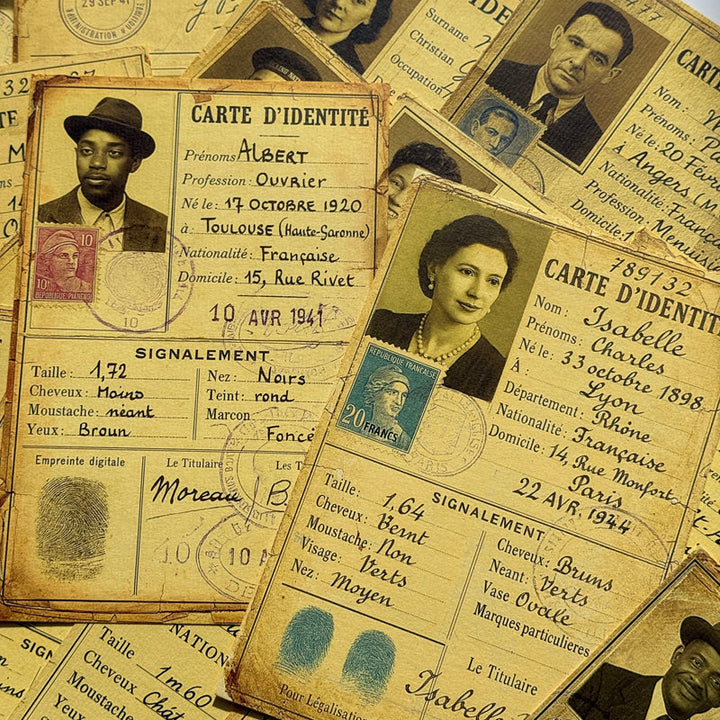 29 SEP 41
ADMINISTRATION
Surname
Christian
Occupation
CARTE D'IDENTITÉ
Prénoms ALBERT
Profession: OUVRIER
Né le: 17 OCTOBRE 1920
à: TOULOUSE (HAUTE-GARONNE)
Nationalité: Française
Domicile: 15, RUE RIVET
10
10F
10 AVR 1941
10
SIGNALEMENT
Taille: 1,72
Cheveux: Moins
Moustache: néant
Yeux: Broun
Nez: Noirs
Teint: rond
Marcon
Foncé
Empreinte digitale
Le Titulaire
Les T
Moreau
10 A
CARTE
Nom:
Prénoms:
Né le: 20 Févr
À Angers (M
Nationalité:
Française
Profession:
Menuisi
Domicile:
789132
CARTE D'IDENTIT
Nom: Isabelle
Prénoms: Charles
Né le: 33 octobre 1898
À: Lyon
Département: Rhône
Nationalité: Française
Domicile: 14, Rue Monfort
Paris
22 AVR, 1944
REPUBLIQUE FRANÇAISE
20
FRANCS
PARIS
SIGNALEMENT
Taille: 1,64
Cheveux: Bernt
Moustache: Non
Visage: Verts
Nez: Moyen
Cheveux: Bruns
Neant: Verts
Vase Ovale
Marques particulieres
Le Titulaire
Pour Légalisation
Isabelle
SIGN
NATION
Taille 1m60
Cheveux
Moustache
Yeux